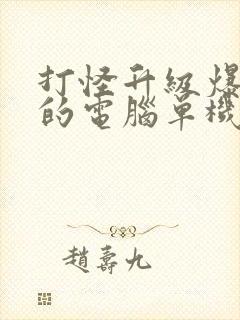 打怪升級爆
的電腦單機
趙壽九